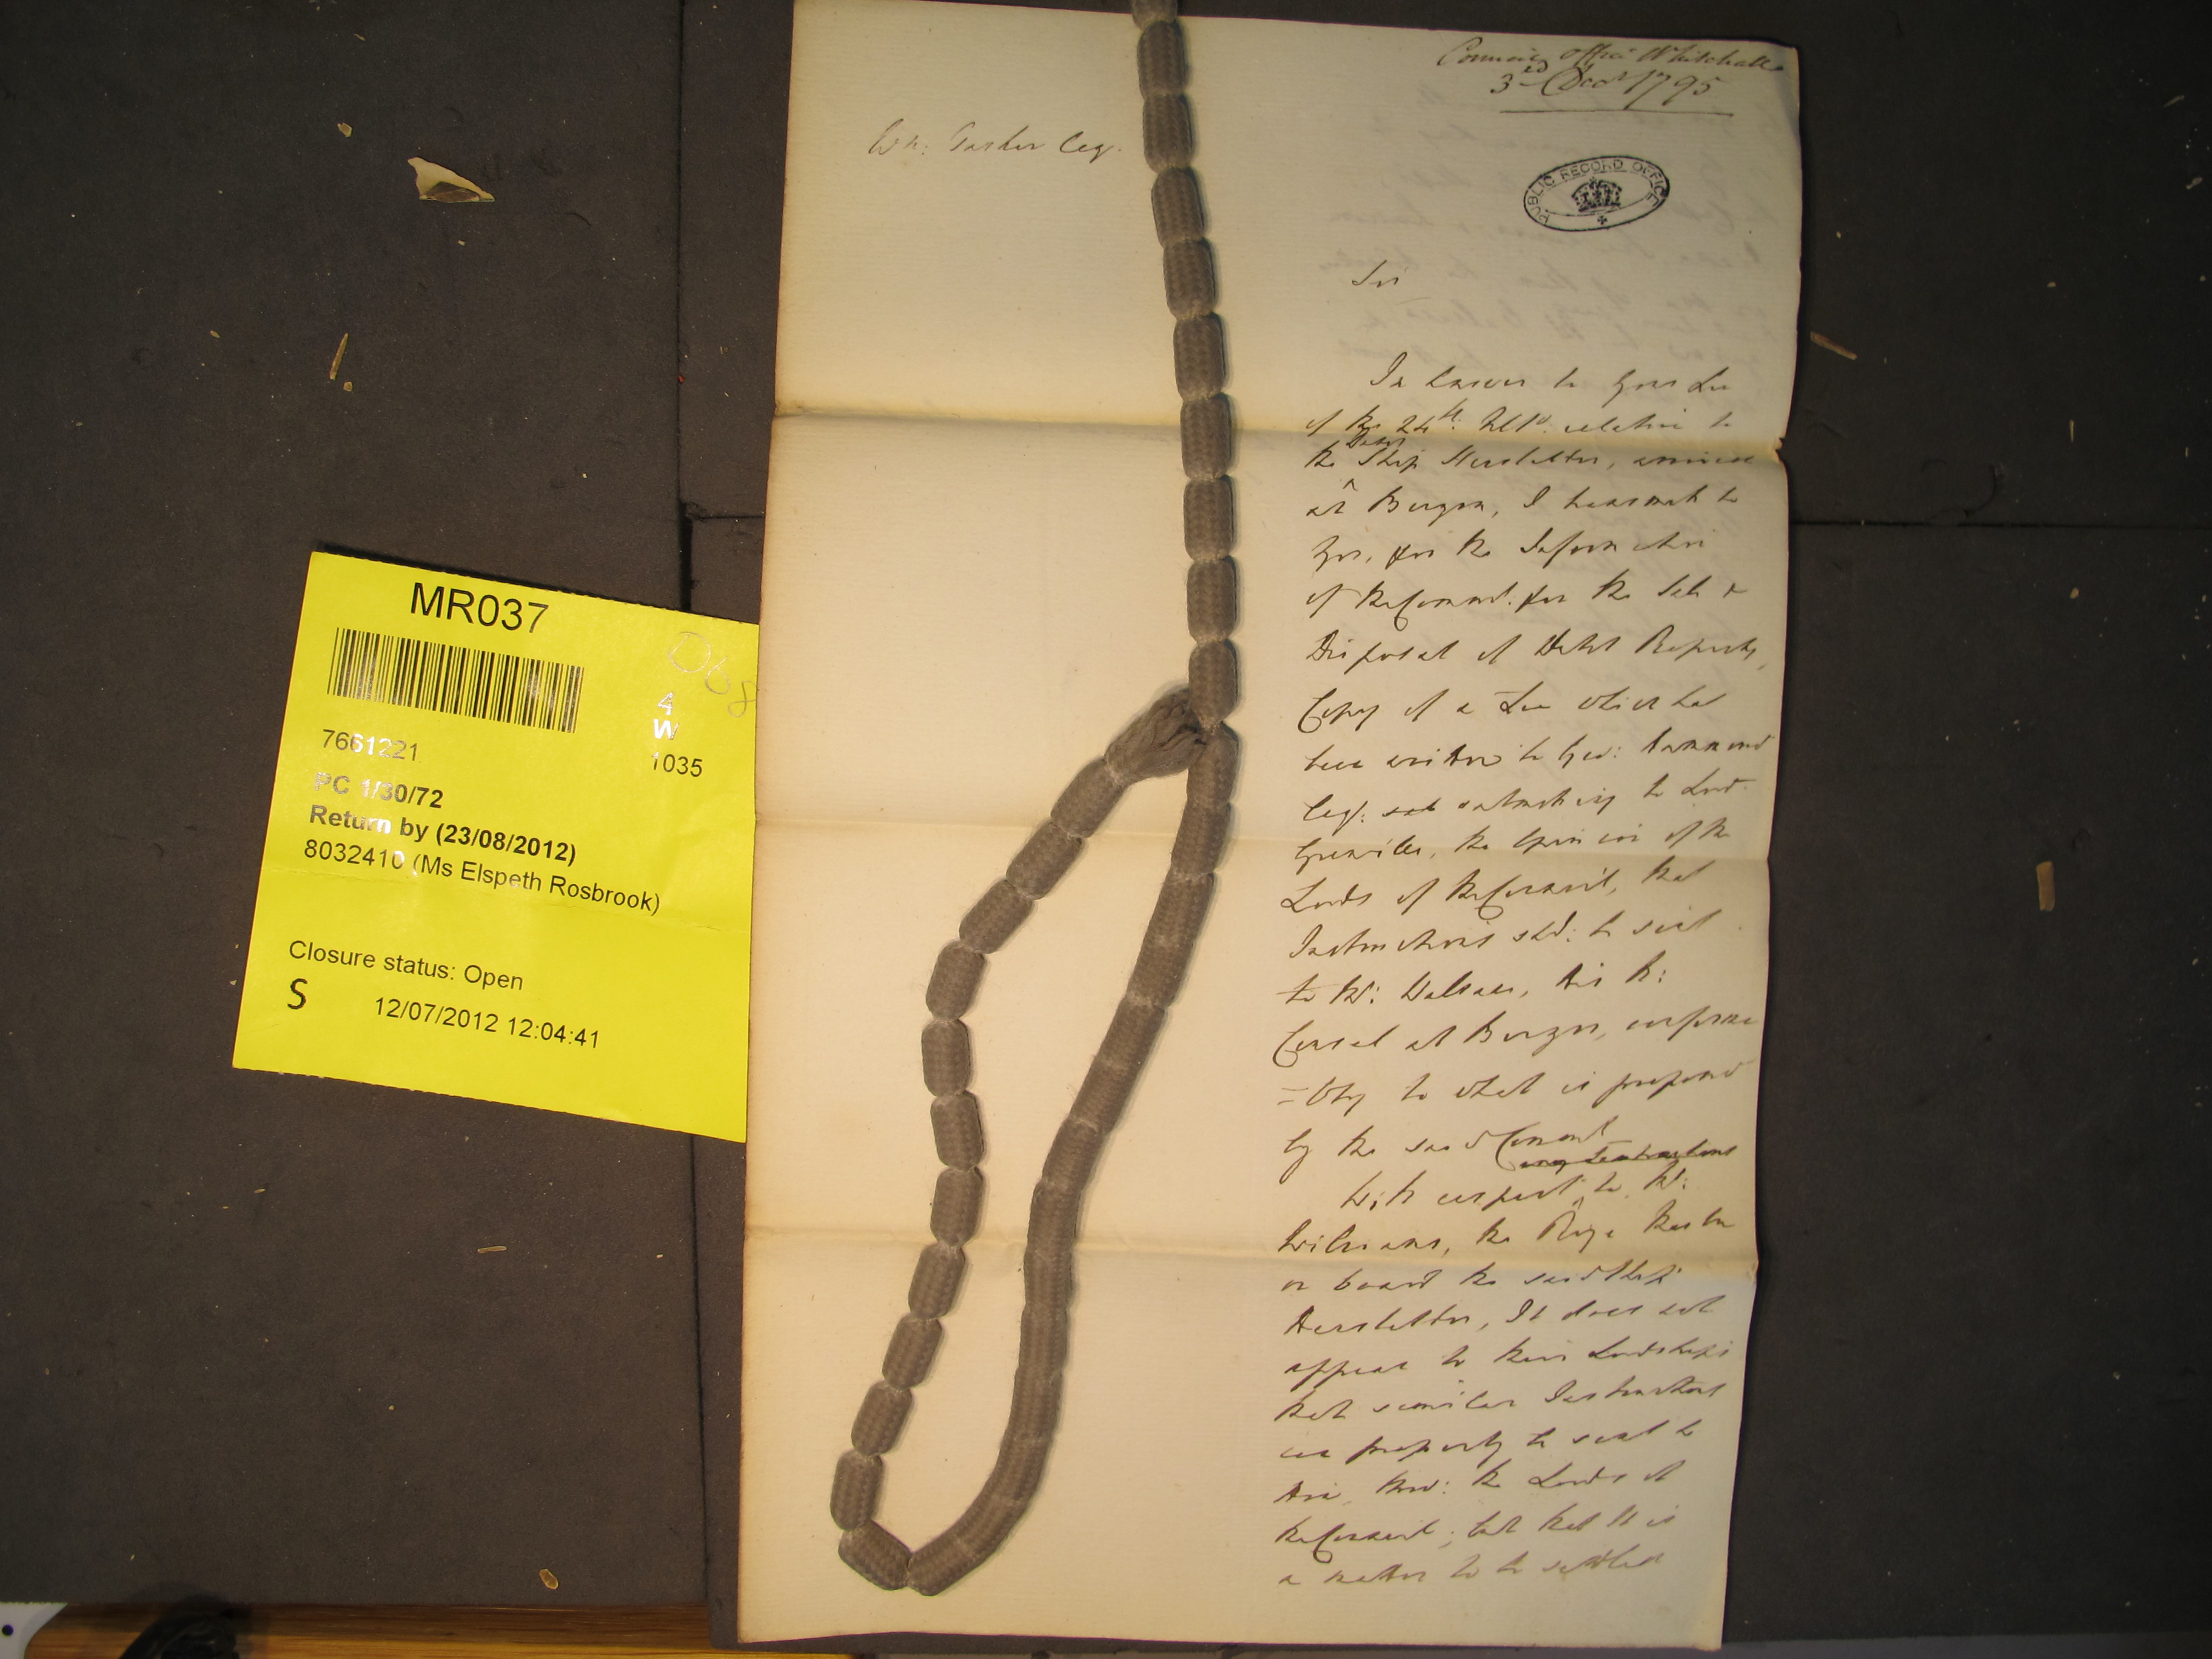 Council Office Whitehall
3rd Decr 1795
Wm: Tasker Esq.
PUBLIC RECORD OFFICE
Sir
In answer to your Lre
of the 24th: Ulto: relative to
the Dutch Ship Herstelder, arrived
at Bergen, I transmit to
you, for the Information
of the Commrs. for the Sale &
Disposal of Dutch Property,
Copy of a Lre which has
been written to Geo: Hammond
Esqr: submitting to Lord
Grenville, the Opinion of the
Lords of the Council, that
Instructions shd: be sent
to Mr: Wallace, His M:
Consul at Bergen, conforma
=bly to what is proposed
by the said Commrs
any Instructions
With respect to Mr:
Williams, the Prize Master
on board the said Ship
Herstelder, It does not
appear to their Lordships
that similar Instructions
can properly be sent to
him from: the Lords of
the Council; but that It is
a matter to be settled
MR037
D68
4
W
7661221
1035
PC 1/30/72
Return by (23/08/2012)
8032410 (Ms Elspeth Rosbrook)
Closure status: Open
S
12/07/2012 12:04:41